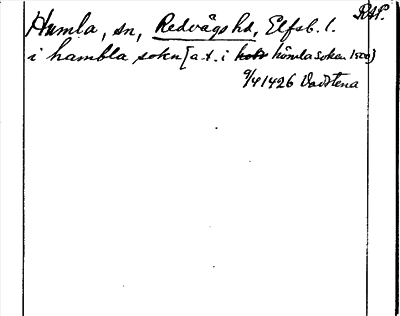 RAP.
Humla, sn, Redvägs hd, Elfsb. l.
i hambla sokn [a.t. i hömla soken 1500]
9/4 1426 Vadstena